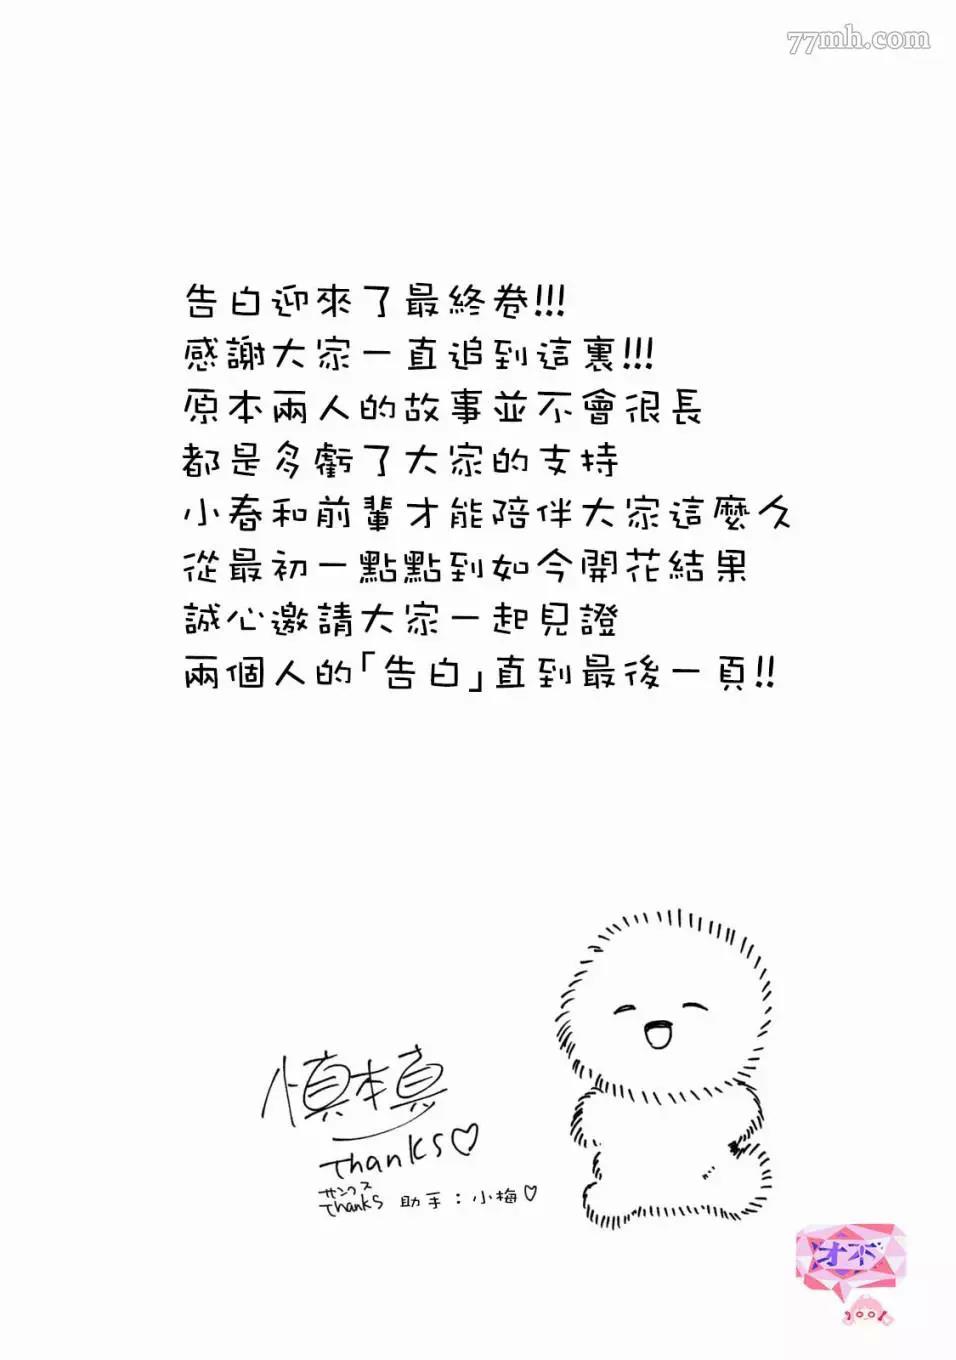 77mh.com
告白迎來了最終卷!!!
感謝大家一直追到這裏!!!
原本兩人的故事並不會很長
都是多虧了大家的支持
小春和前輩才能陪伴大家這麼久
從最初一點點到如今開花結果
誠心邀請大家一起見證
兩個人的「告白」直到最後一頁!!
慎本真
Thanks♡
サンクス
Thanks 助手：小梅♡
才不